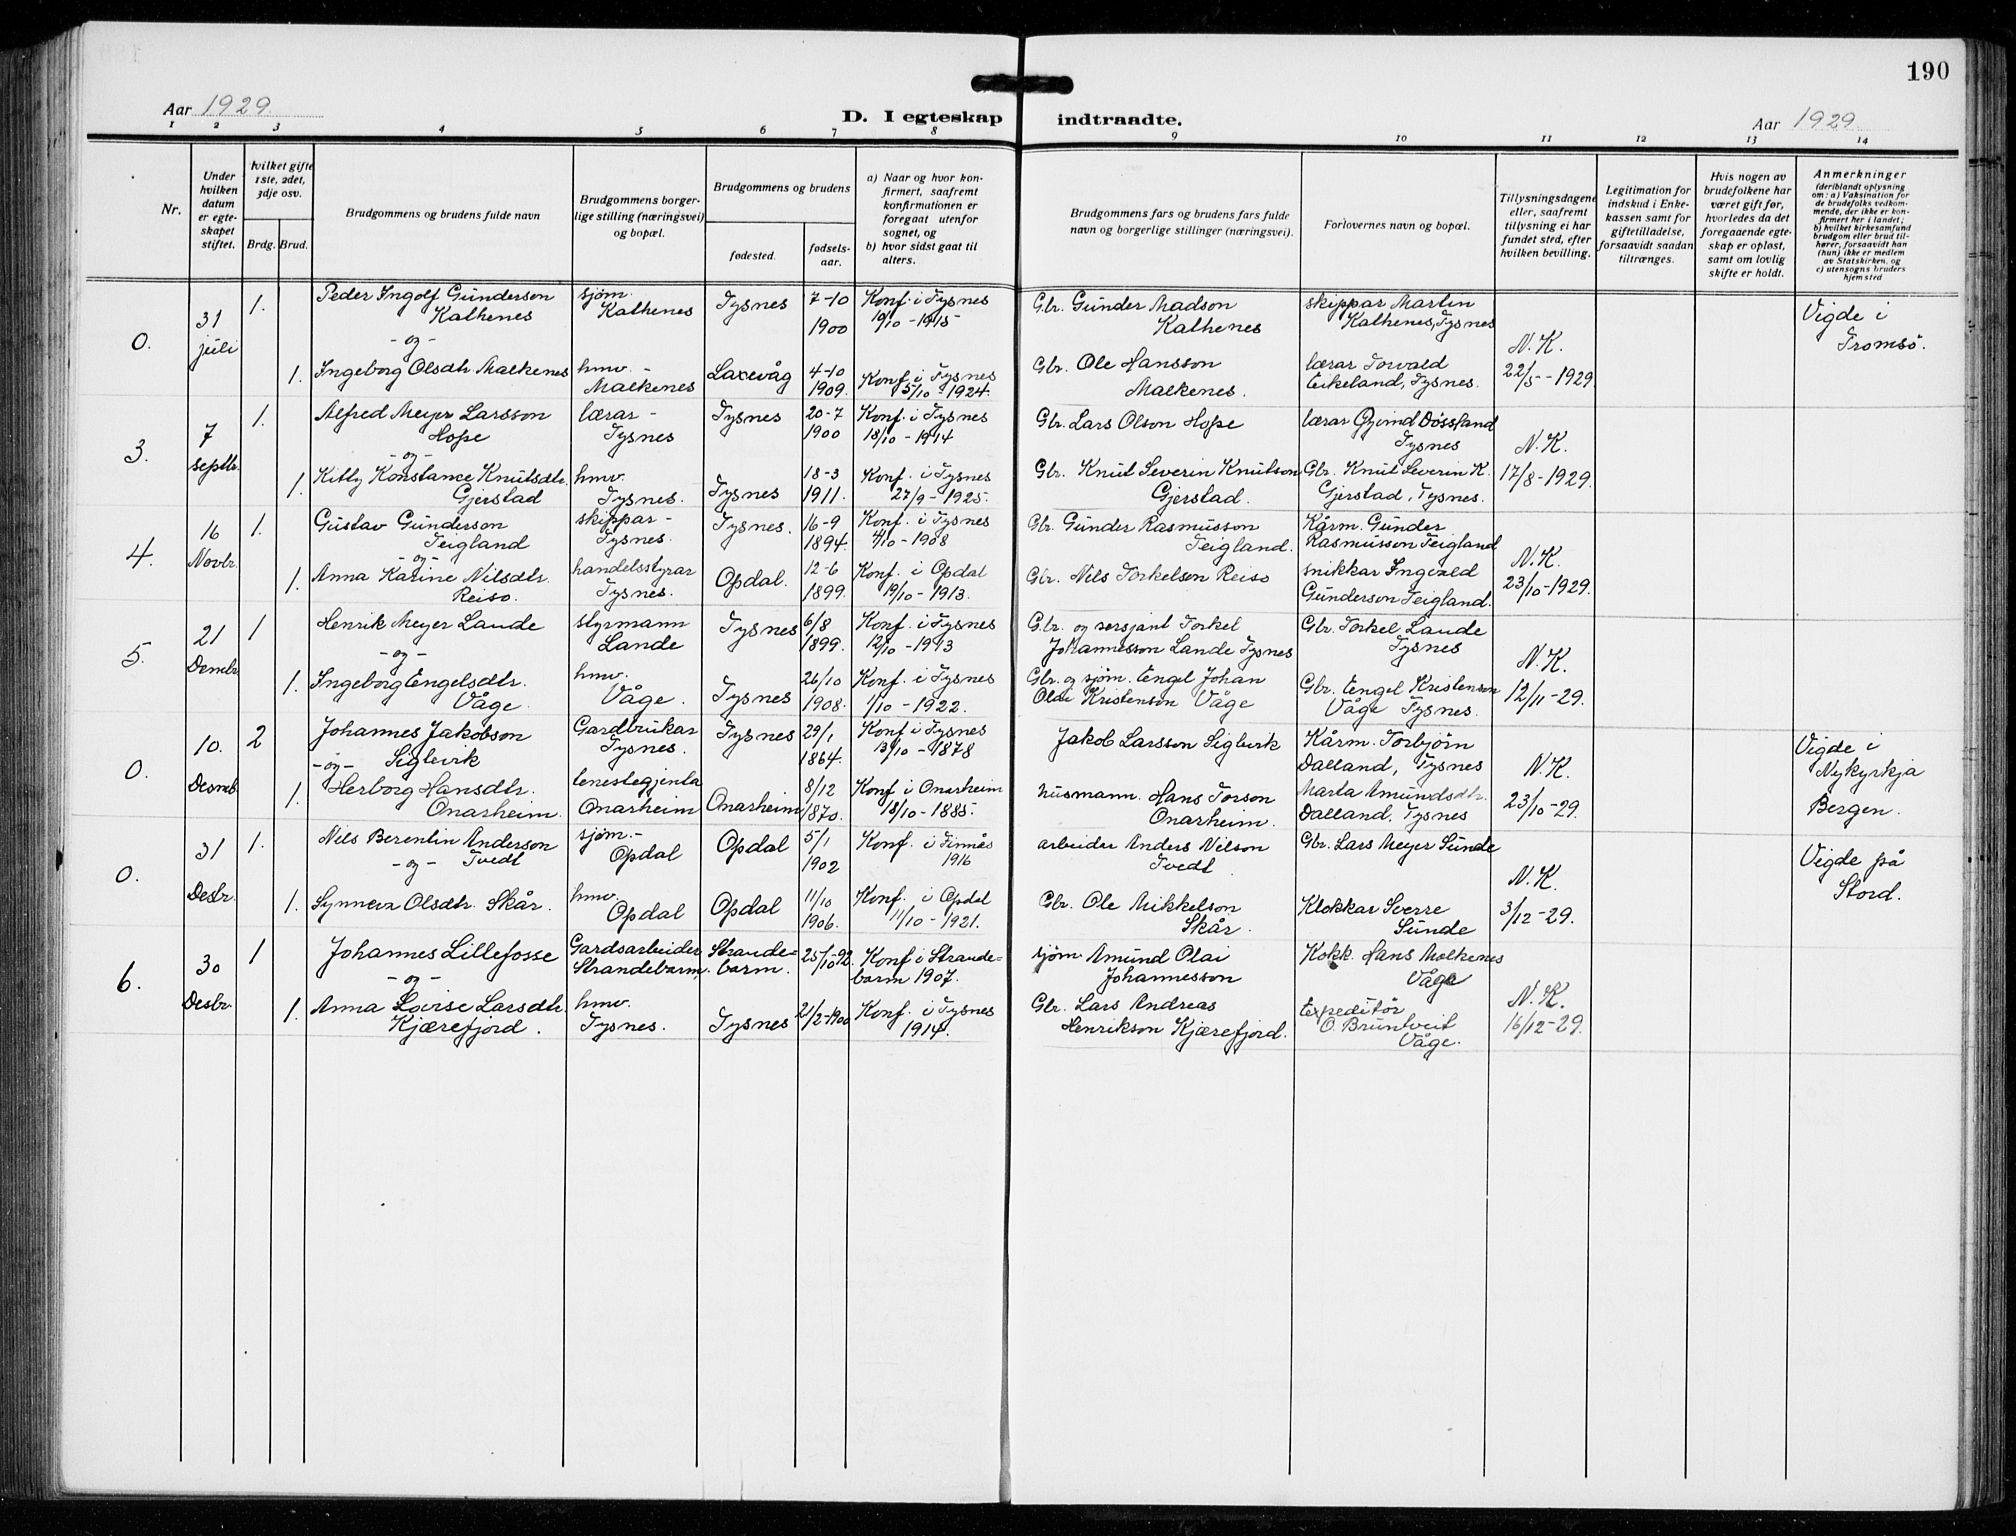 190
Aar 1929.
D. I egteskap indtraadte.
Aar 1929.
1 2 3 4 5 6 7 8 9 10 11 12 13 14
Nr.
Under hvilken datum er egteskapet stiftet.
hvilket gifte 1ste, 2det, 3dje osv.
Brdg. Brud.
Brudgommens og brudens fulde navn
Brudgommens borgerlige stilling (næringsvei) og bopæl.
Brudgommens og brudens
fødested.
fødselsaar.
a) Naar og hvor konfirmert, saafremt konfirmationen er foregaat utenfor sognet, og
b) hvor sidst gaat til alters.
Brudgommens fars og brudens fars fulde navn og borgerlige stillinger (næringsvei).
Forlovernes navn og bopæl.
Tillysningsdagene eller, saafremt tillysning ei har fundet sted, efter hvilken bevilling.
Legitimation for indskud i Enkekassen samt for giftetilladelse, forsaavidt saadan tiltrænges.
Hvis nogen av brudefolkene har været gift før, hvorledes da det foregaaende egteskap er opløst, samt om lovlig skifte er holdt.
Anmerkninger
(deriblandt oplysning om: a) Vaksination for de brudefolks vedkommende, der ikke er konfirmert her i landet; b) hvilket kirkesamfund brudgom eller brud tilhører, forsaavidt han (hun) ikke er medlem av Statskirken, og c) utensogns bruders hjemsted
0. 31 juli 1. Peder Ingolf Gunderson
Kalhenes
-og-
sjøm. Kalhenes
Tysnes
7-10 1900
Konf. i Tysnes
10/10 - 1915
Gbr. Gunder Madson
Kalhenes
skippar Martin
Kalhenes, Tysnes
N. K.
22/5 - 1929
Vigde i
Tromsö.
1. Ingeborg Olsdtr. Malkenes
hmv. - Malkenes
Laxevåg
4-10 1909.
Konf. i Tysnes
5/10 - 1924.
Gbr. Ole Hansson
Malkenes.
lærar Torvald
Eikeland, Tysnes.
3. 7 septbr. 1. Alfred Meyer Larsson
Hope
-og-
lærar - Tysnes
Tysnes
20-7 1900
Konf. i Tysnes
18/10 - 1914
Gbr. Lars Olson Hope
lærar Øyvind Døssland
Tysnes
N. K.
17/8 - 1929.
1. Kitty Konstance Knutsdtr.
Gjerstad
hmv. Tysnes.
Tysnes
18-3 1911.
Konf. i Tysnes
27/9 - 1925.
Gbr. Knut Severin Knutson
Gjerstad.
Gbr. Knut Severin K.
Gjerstad, Tysnes.
4. 16 Novbr. 1. Gustav Gunderson
Teigland
-og-
skippar - Tysnes.
Tysnes.
16-9 1894.
Konf. i Tysnes
4/10 - 1908
Gbr. Gunder Rasmusson
Teigland.
Kårm. Gunder
Rasmusson Teigland
N. K.
23/10 - 1929.
1. Anna Karine Nilsdtr.
Reiso.
handelsstyrar
Tysnes.
Opdal.
12-6 1899.
Konf. i Opdal
19/10 - 1913.
Gbr. Nils Torkelson Reiso
snikkar Ingvald
Gunderson Teigland.
5. 21 Desmbr 1 Henrik Meyer Lande
-og-
styrmann
Lande
Tysnes
6/8 1899.
Konf. i Tysnes
12/10 - 1913
Gbr. og sersjant Torkel
Johannesson Lande Tysnes
Gbr. Torkel Lande
Tysnes
N. K.
12/11 - 29.
1. Ingeborg Engelsdtr.
Våge
hmv. Våge.
Tysnes
26/10 1908.
Konf. i Tysnes
1/10 - 1922.
Gbr. og sjøm. Engel Johan
Olai Kristenson Våge
Gbr. Engel Kristenson
Våge Tysnes.
0. 10. Desmb. 2 Johannes Jakobson
-og- Siglevik
Gardbrukar
Tysnes.
Tysnes
29/1 1864.
Konf. i Tysnes
13/10 - 1878
Jakob Larsson Siglevik
Kårm. Torbjørn
Dalland, Tysnes
N. K.
23/10 - 29.
Vigde i
Nykyrkja
Bergen.
1. Herborg Hansdtr.
Onarheim.
tenestegjenta
Onarheim
Onarheim
8/12 1870.
Konf. i Onarheim
18/10 - 1885.
husmann. Hans Torson
Onarheim.
Marta Amundsdtr.
Dalland, Tysnes
0. 31 Desbr. 1. Nils Berentin Anderson
-og- Tvedt
sjøm. - Opdal
Opdal
5/1 1902
Konf. i Finnås
1916
arbeidar Anders Nilson
Tvedt
Gbr. Lars Meyer Sunde
N. K.
3/12 - 29.
Vigde på
Stord.
1. Synneva Olsdtr. Skår.
hmv. Opdal
Opdal
11/10 1906.
Konf. i Opdal
11/10 - 1921.
Gbr. Ole Mikkelson
Skår.
Klokkar Sverre
Sunde
6. 30 Desbr 1 Johannes Lillefosse
-og-
Gardsarbeider
Strandebarm.
Strandebarm.
25/10-92.
Konf i Strandebarm 1907.
sjøm Amund Olai
Johannesson
Kokk. Hans Malkenes
Våge
N. K.
16/12 - 29.
1. Anna Lovise Larsdtr.
Kjærefjord.
hmv. Tysnes.
Tysnes
21/2-1900
Konf. i Tysnes
1914.
Gbr. Lars Andreas
Henrikson Kjærefjord.
Expeditør
O. Bruntveit
Våge.